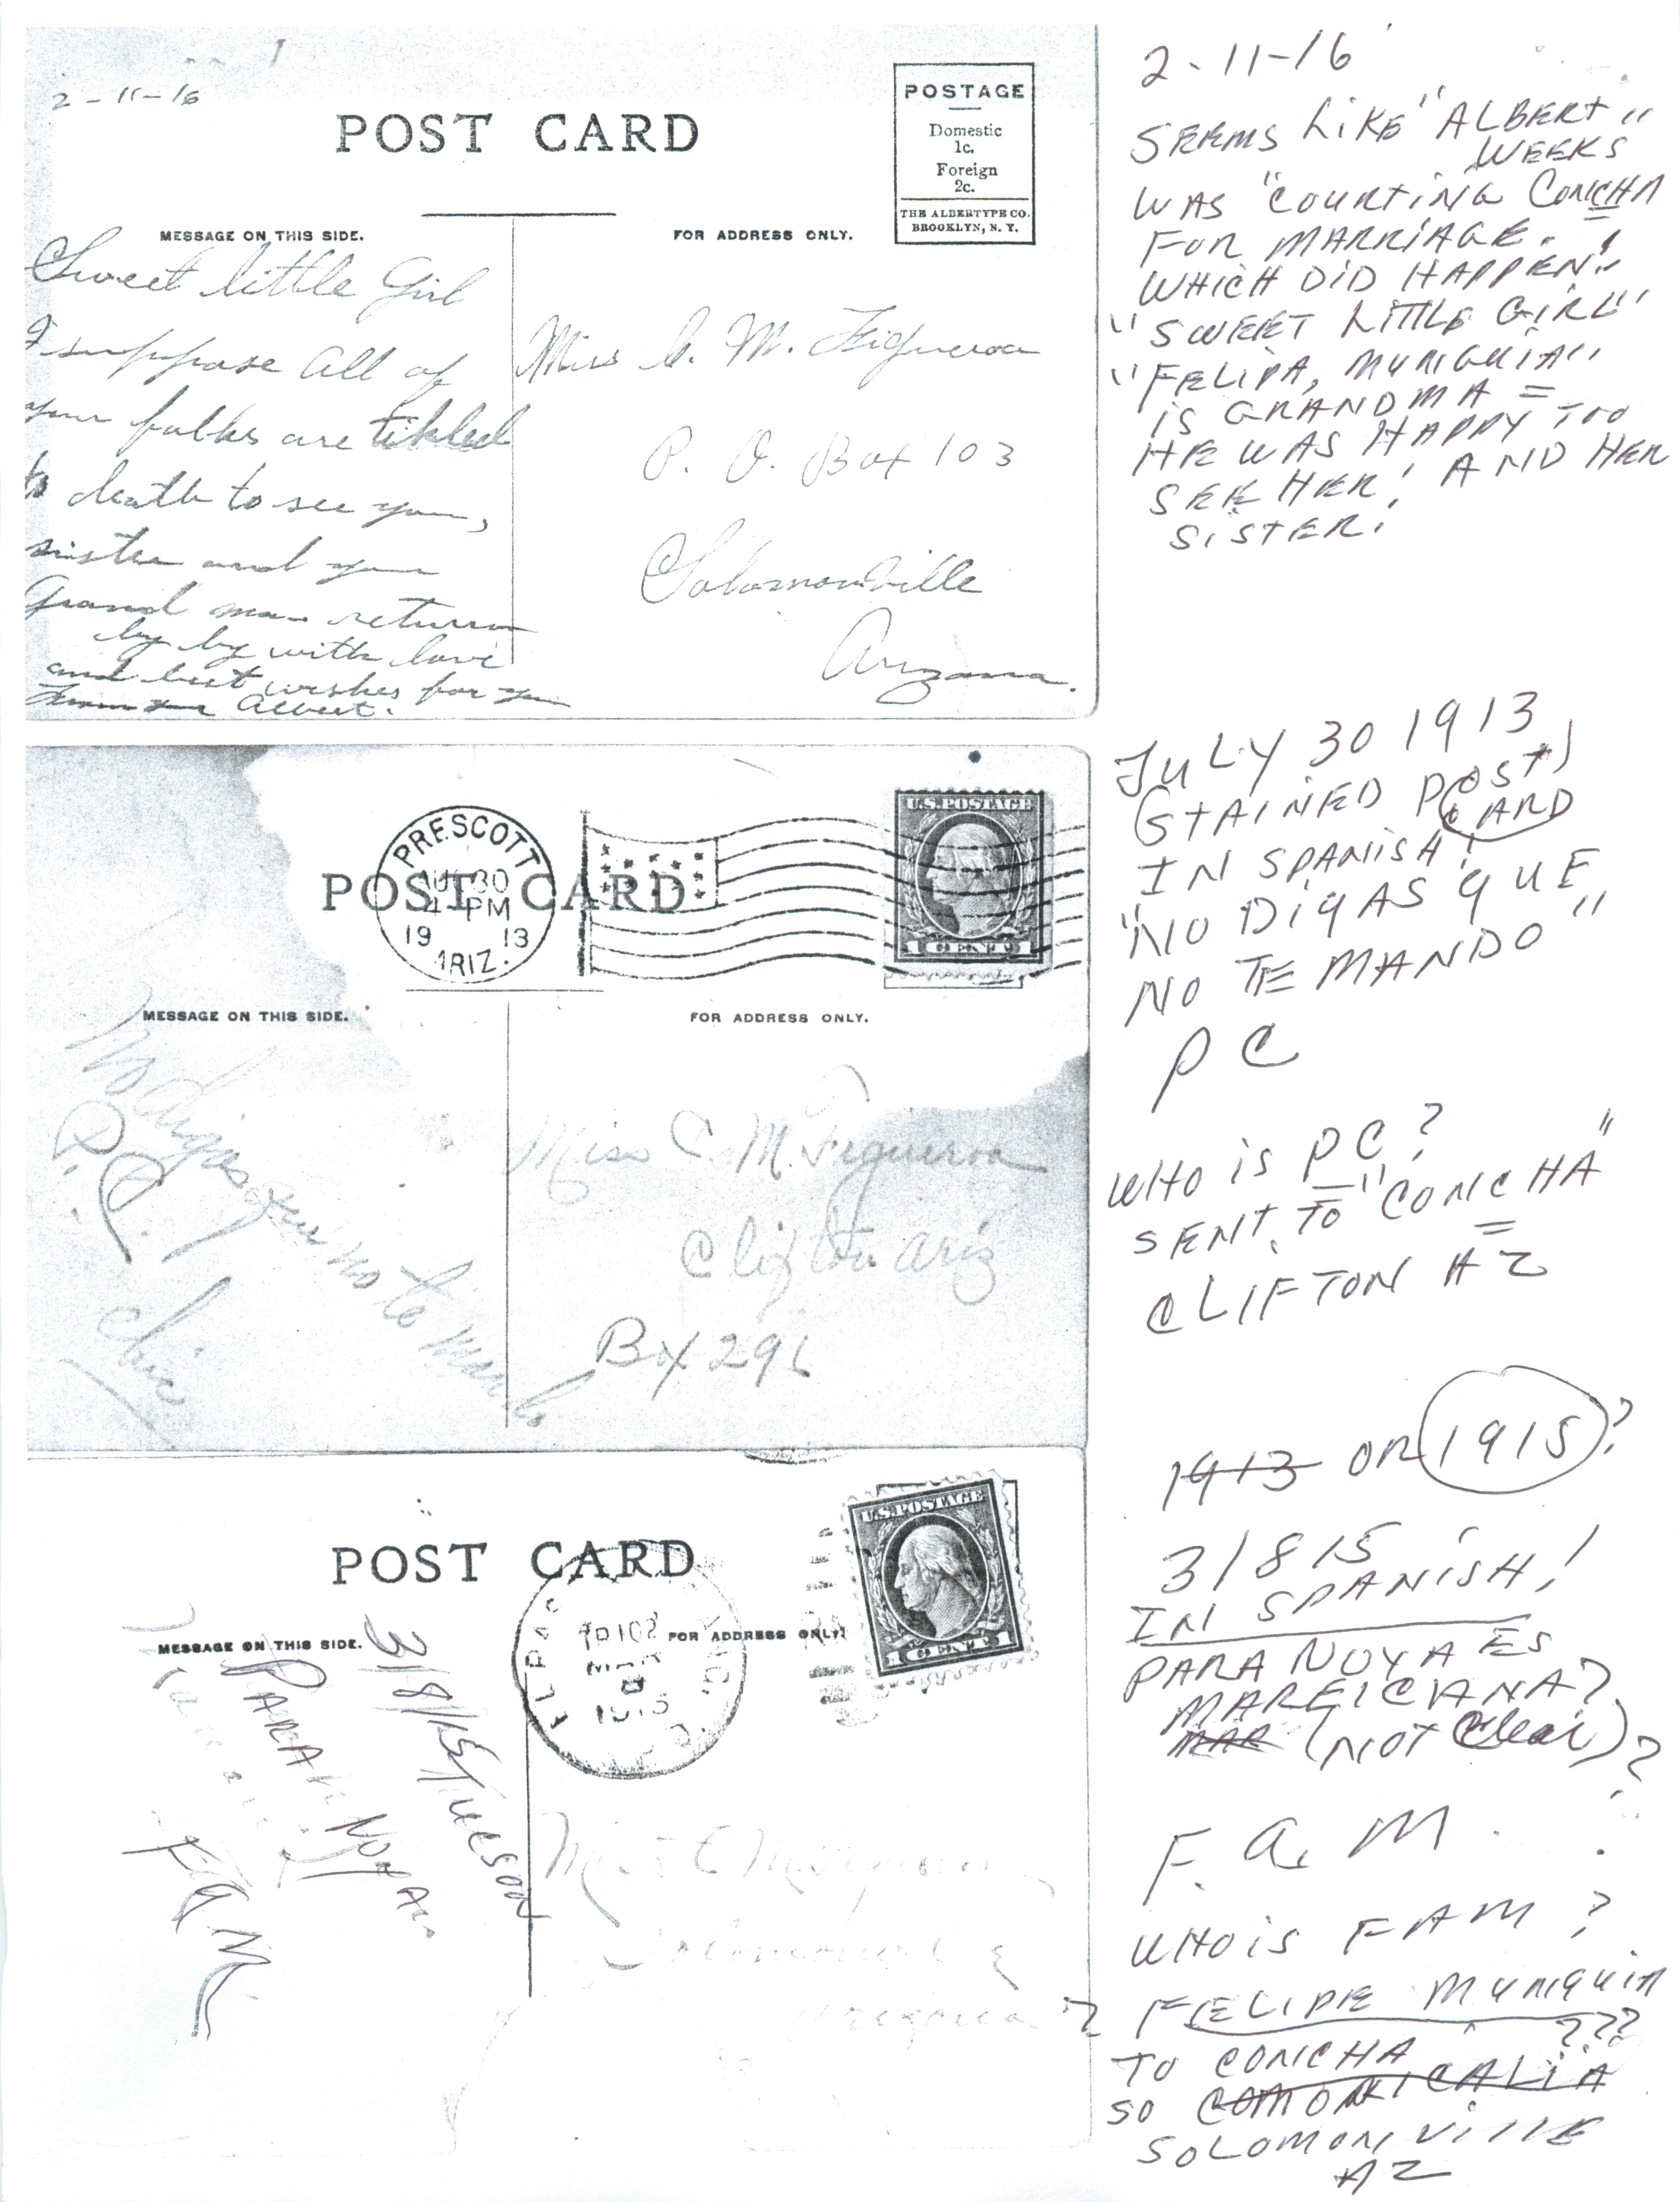 2-11-16
POST CARD
POSTAGE
Domestic
1c.
Foreign
2c.
THE ALBERTYPE CO.
BROOKLYN, N. Y.
MESSAGE ON THIS SIDE.
FOR ADDRESS ONLY.
Sweet little Girl
I suppose all of
your folks are tikled
to death to see you,
sister and your
Grand ma return
by by with love
and best wishes for you
Albert.
Miss C. M. Figueroa
P. O. Box 103
Solomonville
Arizona.
2-11-16
SEEMS LIKE "ALBERT"
WEEKS
WAS "COURTING CONCHA
FOR MARRIAGE.
WHICH DID HAPPEN!
"SWEET LITTLE GIRL"
"FELIPA, MUNGUIA"
IS GRANDMA =
HE WAS HAPPY TOO
SEE HER! AND HER
SISTER!
POST CARD
PRESCOTT
30
4 PM
19 13
ARIZ.
U.S. POSTAGE
1 CENT 1
MESSAGE ON THIS SIDE.
FOR ADDRESS ONLY.
No digas que no te mando
P.C.
Chic
Miss C. M. Figueroa
Clifton Ariz
Box 296
JULY 30 1913
STAINED POST
CARD
IN SPANISH!
"NO DIGAS QUE
NO TE MANDO"
PC
WHO IS PC?
SENT TO "CONCHA"
=
CLIFTON AZ
POST CARD
U.S. POSTAGE
1 CENT 1
MESSAGE ON THIS SIDE.
FOR ADDRESS ONLY.
3/8/15 Tucson
PARA
F A M
Miss C M
1913 OR 1915?
3/8 15
IN SPANISH!
PARA NOYA ES
MAREICIANA?
MAR (NOT Clear)?
F. a. M.
WHO IS FAM?
? FELIPE MUNGUIA
???
TO CONCHA
SO
SOLOMONVILLE
AZ